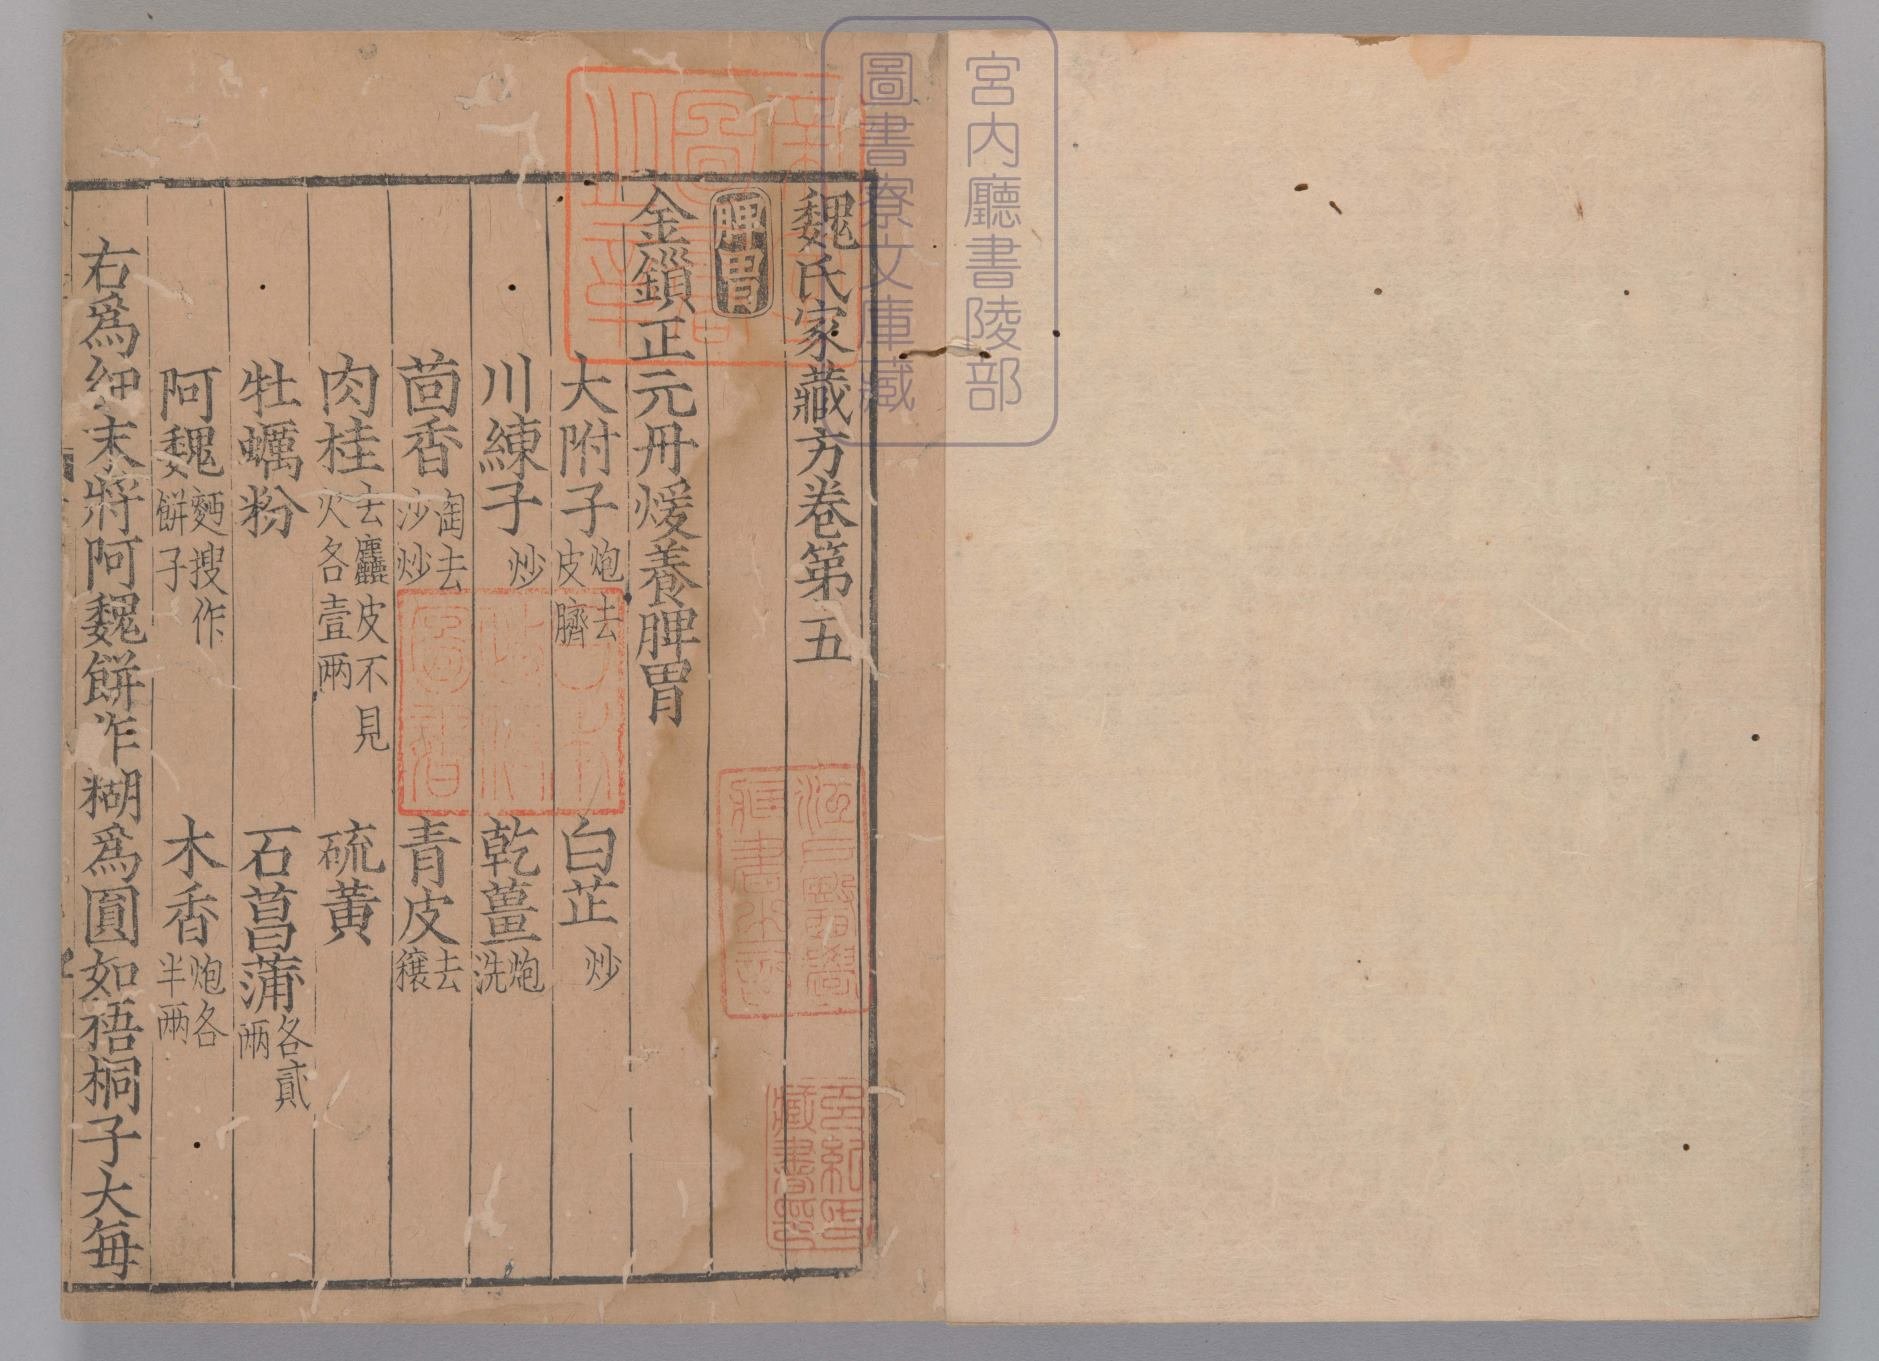 宮内廳書陵部
圖書寮文庫藏
魏氏家藏方卷第五
脾胃
金鎻正元丹煖養脾胃
大附子炮去皮臍 白芷炒
川練子炒 乾薑炮洗
茴香淘去沙炒 青皮去穰
肉桂去麤皮不見火各壹兩 硫黃
牡蠣粉 石菖蒲各貳兩
阿魏麪搜作餅子 木香炮各半兩
右爲細末將阿魏餅作糊爲圓如梧桐子大每